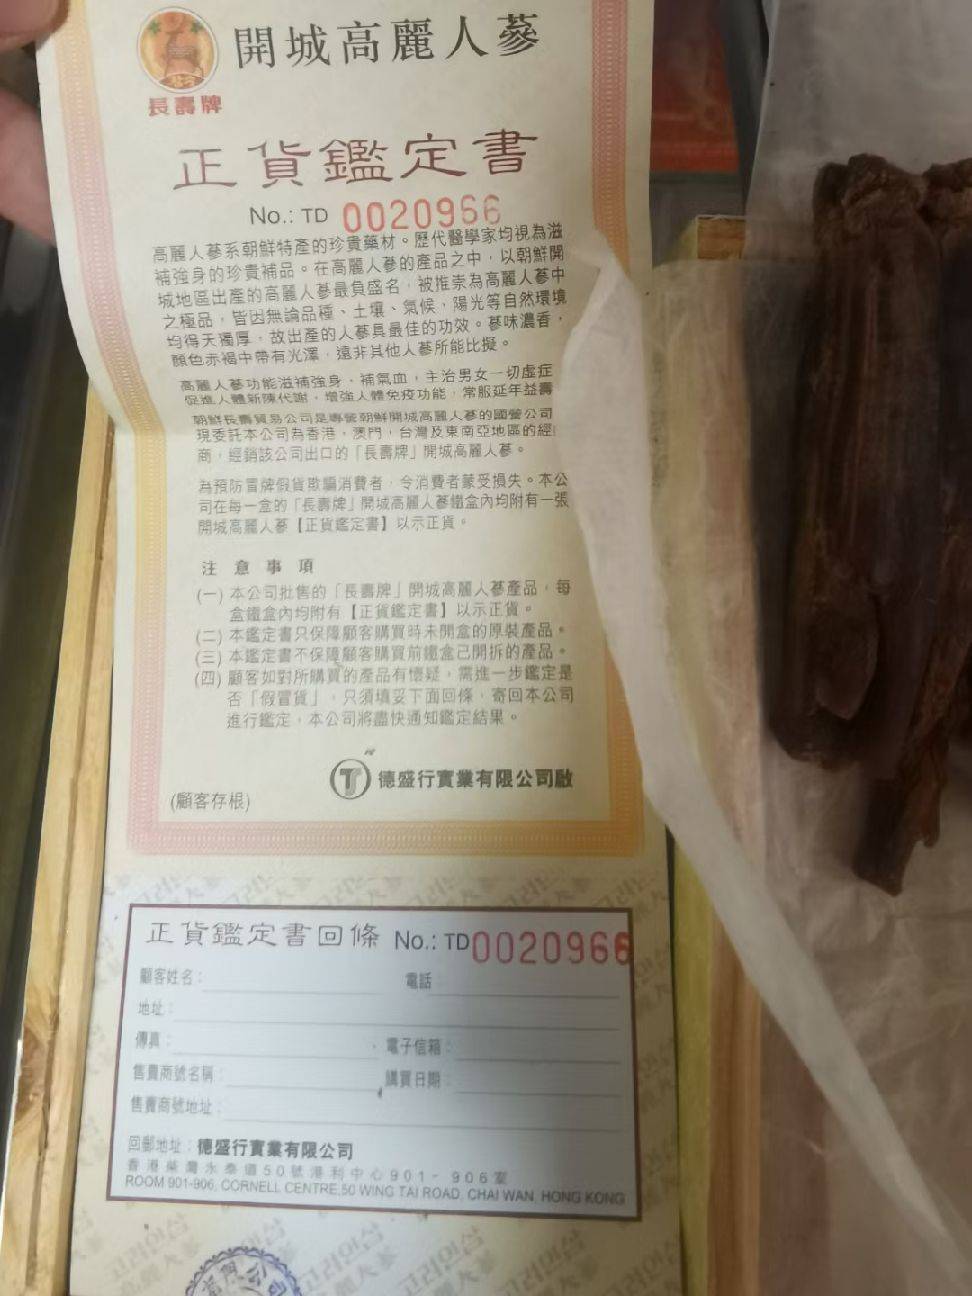 開城高麗人蔘
長壽牌
正貨鑑定書
No.: TD 0020966
高麗人蔘系朝鮮特產的珍貴藥材。歷代醫學家均視為滋
補強身的珍貴補品。在高麗人蔘的產品之中，以朝鮮開
城地區出產的高麗人蔘最負盛名，被推崇為高麗人蔘中
之極品，皆因無論品種、土壤、氣候，陽光等自然環境
均得天獨厚，故出產的人蔘具最佳的功效。蔘味濃香，
顏色赤褐中帶有光澤，遠非其他人蔘所能比擬。
高麗人蔘功能滋補強身、補氣血，主治男女一切虛症
促進人體新陳代謝，增強人體免疫功能，常服延年益壽
朝鮮長壽貿易公司是專營朝鮮開城高麗人蔘的國營公司
現委託本公司為香港，澳門，台灣及東南亞地區的經
商，經銷該公司出口的「長壽牌」開城高麗人蔘。
為預防冒牌假貨欺騙消費者，令消費者蒙受損失。本公
司在每一盒的「長壽牌」開城高麗人蔘鐵盒內均附有一張
開城高麗人蔘【正貨鑑定書】以示正貨。
注意事項
(一) 本公司批售的「長壽牌」開城高麗人蔘產品，每
盒鐵盒內均附有【正貨鑑定書】以示正貨。
(二) 本鑑定書只保障顧客購買時未開盒的原裝產品。
(三) 本鑑定書不保障顧客購買前鐵盒已開拆的產品。
(四) 顧客如對所購買的產品有懷疑，需進一步鑑定是
否「假冒貨」，只須填妥下面回條，寄回本公司
進行鑑定，本公司將盡快通知鑑定結果。
T 德盛行實業有限公司啟
(顧客存根)
正貨鑑定書回條 No.: TD0020966
顧客姓名： 電話
地址：
傳真： 電子信箱：
售賣商號名稱： 購買日期：
售賣商號地址：
回郵地址：德盛行實業有限公司
香港柴灣永泰道50號港利中心901-906室
ROOM 901-906, CORNELL CENTRE,50 WING TAI ROAD, CHAI WAN, HONG KONG